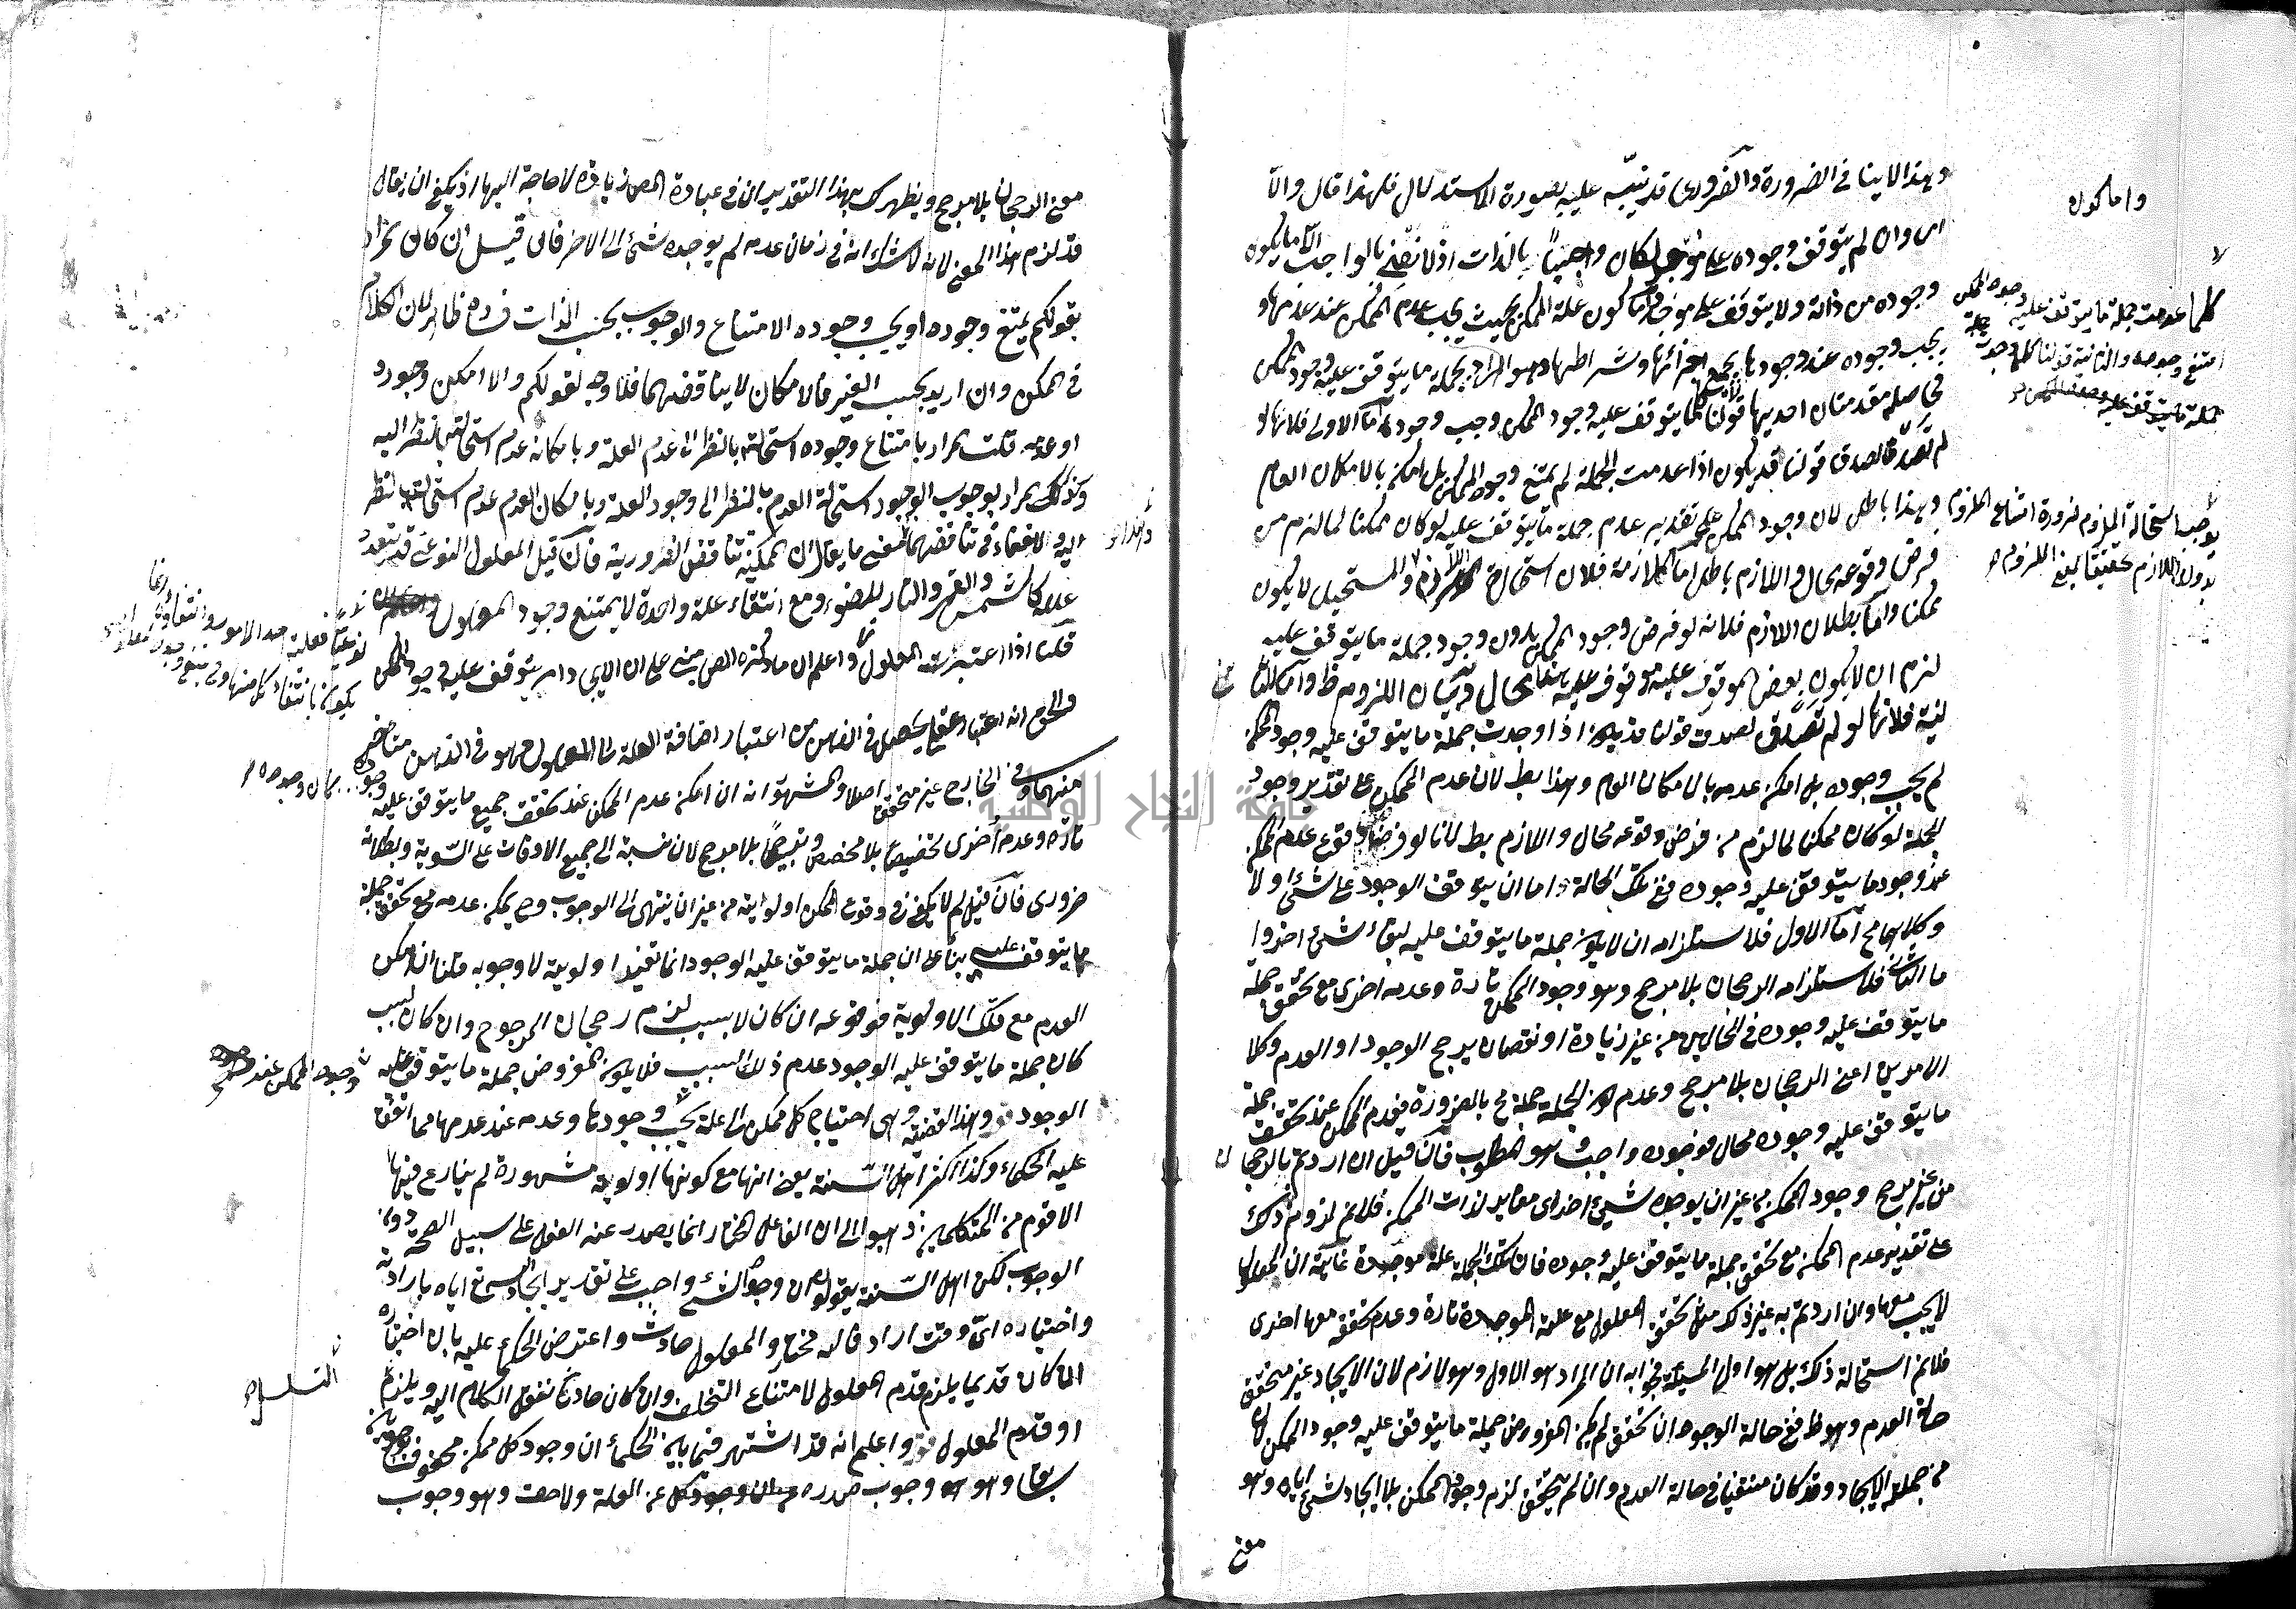 وهذا لا ينافي الضرورة والضروري قد ينبّه عليه بصورة الاستدلال فلهذا قال والّا
اي وان لم يتوقف وجوده على موجد لكان واجبًا بالذات اذ لا نعني بالواجب الّا ما يكون
وجوده من ذاته ولا يتوقف على موجد واما كون علة الممكن بحيث يجب عدم الممكن عند عدمها و
يجب وجوده عند وجودها بجميع اجزائها وشرائطها وهو المراد بجملة ما يتوقف عليه وجود الممكن
فحاصله مقدمتان احديهما قولنا كلما يتوقف عليه وجود الممكن وجب وجوده اما الاولى فلانها لو
لم تصدق لصدق قولنا قد يكون اذا عدمت الجملة لم يمتنع وجود الممكن بل امكن بالامكان العام
وهذا باطل لان وجود الممكن على تقدير عدم جملة ما يتوقف عليه لو كان ممكنا لما لزم من
فرض وقوعه محال واللازم باطل اما الملازمة فلان استحالة اللازم والمستحيل لا يكون
ممكنا واما بطلان اللازم فلانه لو فرض وجود الممكن بدون وجود جملة ما يتوقف عليه
لزم ان لا يكون بعض الموقوف عليه موقوف عليه هذا محال وبيان اللزوم ظ واما الثا
نية فلانها لو لم تصدق لصدق قولنا قد يكون اذا وجدت جملة ما يتوقف عليه وجود الممكن
لم يجب وجوده بل امكن عدمه بالامكان العام وهذا بط لان عدم الممكن على تقدير وجود
الجملة لو كان ممكنا لما لزم من فرض وقوعه محال واللازم بط لانا لو فرضنا وقوع عدم الممكن
عند وجود ما يتوقف عليه وجوده ففي تلك الحالة اما ان يتوقف الوجود على شئ او لا
وكلاهما مح اما الاول فلاستلزامه ان لا يكون جملة ما يتوقف عليه لبقاء شئ اخر وا
ما الثاني فلاستلزامه الرجحان بلا مرجح وهو وجود الممكن تارة وعدمه اخرى مع تحقق جملة
ما يتوقف عليه وجوده في الحالين من غير زيادة او نقصان يرجح الوجود او العدم وكلا
الامرين اعني الرجحان بلا مرجح وعدم كون الجملة جملة مح بالضرورة فعدم الممكن عند تحقق جملة
ما يتوقف عليه وجوده محال فوجوده واجب وهو المطلوب فان قيل ان اردتم بالرجحان
من غير مرجح وجود الممكن من غير ان يوجده شئ اخر اي مغاير لذات الممكن فلا نم لزوم ذلك
على تقدير عدم الممكن مع تحقق جملة ما يتوقف عليه وجوده فان تلك الجملة علة موجدة غايته ان المعلول
لا يجب معها وان اردتم به غير ذلك مثل تحقق المعلول مع علته الموجدة تارة وعدم تحققه معها اخرى
فلا نم استحالة ذلك بل هو اول المسئلة فجوابه ان المراد هو الاول وهو لازم لان الايجاد غير متحقق
حالة العدم وهو ظ ففي حالة الوجود ان تحقق لم يكن المفروض جملة ما يتوقف عليه وجود الممكن لان
من جملته الايجاد وقد كان منتفيا في حالة العدم وان لم يتحقق لزم وجود الممكن بلا ايجاد شئ اياه وهو
معنى
واما كون
كلما عدمت جملة ما يتوقف عليه وجود الممكن
امتنع وجوده والثانية قولنا كلما وجدت جملة
يوجب استحالة الملزوم ضرورة امتناع الملزوم
بدون اللازم تحقيقا لمعنى اللزوم
معنى الرجحان بلا مرجح ويظهر لك بهذا التقدير ان في عبارة المص زيادة لا حاجة اليها اذ يكفي ان يقال
قد لزم هذا المعنى لانه لا شك انه في زمان عدمه لم يوجده شئ الى الاخر فان قيل ان كان المراد
بقولكم يمتنع وجوده او يجب وجوده الامتناع والوجوب بحسب الذات ففساده ظاهر لان الكلام
في الممكن وان اريد بحسب الغير فالامكان لا يناقضهما فلا وجه لقولكم والا امكن وجوده
او عدمه قلت المراد بامتناع وجوده استحالته بالنظر الى عدم العلة وبامكانه عدم استحالته بالنظر اليه
وكذلك المراد بوجوب الوجود استحالة العدم بالنظر الى وجود العلة وبامكان العدم عدم استحالته بالنظر
اليه ولا خفاء في تناقضهما معنى ما يقال ان الممكنة تناقض الضرورية فان قيل المعلول النوعي قد يتعدد
علله كالشمس والقمر والنار للضوء ومع انتفاء علة واحدة لا يمتنع وجود المعلول
قلنا اذا اعتبرت المعلول واعلم ان ما ذكره المص مبني على ان الايجاد امر يتوقف عليه وجود الممكن
والحق انه اعتبار عقلي يحصل في الذهن من اعتبار اضافة العلة الى المعلول فهو في الذهن متاخر
منهما وفي الخارج غير متحقق اصلا والمشهور انه ان امكن عدم الممكن عند تحقق جميع ما يتوقف عليه
تارة وعدمه اخرى تخصيصا بلا مخصص وترجيحا بلا مرجح لان نسبته الى جميع الاوقات على السوية وبطلانه
ضروري فان قيل لم لا يكفي في وقوع الممكن اولوية من غير ان ينتهي الى الوجوب وح يمكن عدمه مع تحقق جملة
ما يتوقف عليه بناء على ان جملة ما يتوقف عليه الوجود انما تفيد اولوية لا وجوبه قلنا ان امكن
العدم مع تلك الاولوية فوقوعه ان كان لا بسبب لزم رجحان المرجوح وان كان بسبب
كان جملة ما يتوقف عليه الوجود عدم ذلك السبب فلا يكون المفروض جملة ما يتوقف عليه
الوجود وهذه القضية وهي احتياج كل ممكن الى علة يجب وجودها وعدمه عند عدمها مما اتفق
عليه الحكماء وكذا اكثر اهل السنة يعني انها مع كونها اولوية مشهورة لم ينازع فيها
الا قوم من المتكلمين ذهبوا الى ان الفاعل المختار انما يصدر عنه الفعل على سبيل الصحة دون
الوجوب لكن اهل السنة يقولون ان وجود الشئ واجب على تقدير ايجاد الله تع اياه بارادته
واختياره اي وقت اراد فالله مختار والمعلول حادث واعترض الحكماء عليه بان اختياره
ان كان قديما يلزم قدم المعلول لامتناع التخلف وان كان حادثا ننقل الكلام اليه ويلزم
او قدم المعلول واعلم انه قد اشتهر فيما بين الحكماء ان وجود كل ممكن محفوف بوجوبين
سابق وهو وجوب صدوره عن العلة ولاحق وهو وجوب
التسلسل